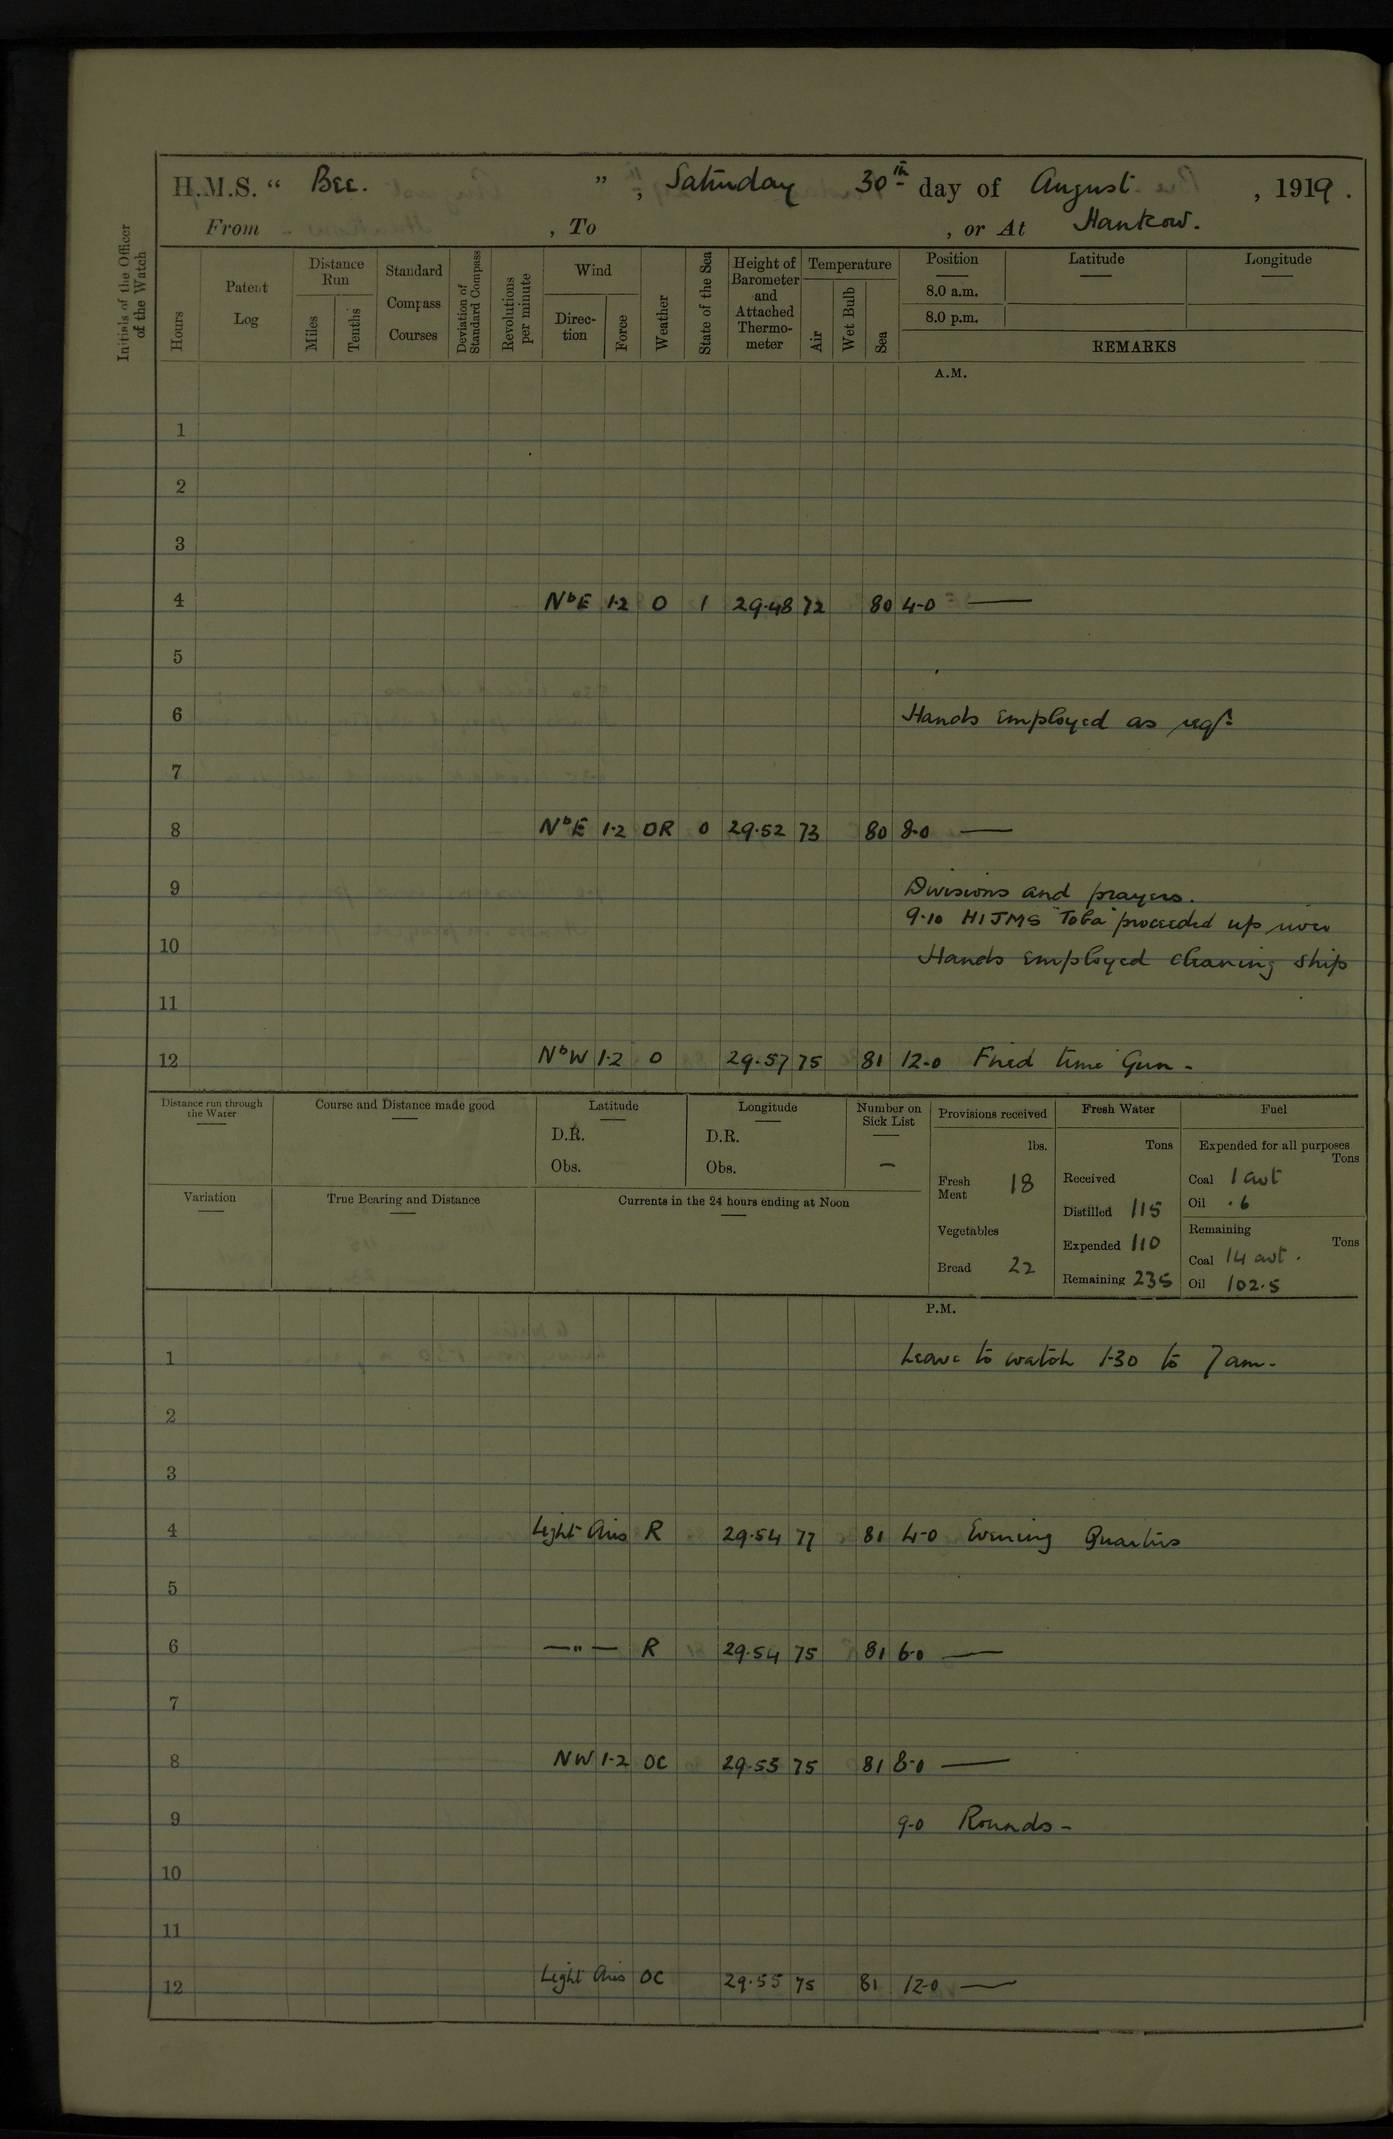 H.M.S. “ Bee. ”, Saturday 30th day of August, 1919.
From , To , or At Hankow.
Initials of the Officer of the Watch
Hours
Patent Log
Distance Run
Miles
Tenths
Standard Compass Courses
Deviation of Standard Compass
Revolutions per minute
Wind
Direc-tion
Force
Weather
State of the Sea
Height of Barometer and Attached Thermo-meter
Temperature
Air
Wet Bulb
Sea
Position
8.0 a.m.
8.0 p.m.
Latitude
Longitude
REMARKS
A.M.
1
2
3
4 NbE 1·2 O 1 29·48 72 80 4-0 —
5
6 Hands employed as reqd
7
8 NbE 1·2 OR 0 29·52 73 80 8-0 —
9 Divisions and prayers.
9·10 HIJMS "Toba" proceeded up river
10 Hands employed cleaning ship
11
12 NbW 1·2 O 29·57 75 81 12-0 Fired time Gun -
Distance run through the Water
Course and Distance made good
Latitude
D.R.
Obs.
Longitude
D.R.
Obs.
Number on Sick List
—
Variation
True Bearing and Distance
Currents in the 24 hours ending at Noon
Provisions received
lbs.
Fresh Meat 18
Vegetables
Bread 22
Fresh Water
Tons
Received
Distilled 115
Expended 110
Remaining 235
Fuel
Expended for all purposes
Tons
Coal 1 cwt
Oil ·6
Remaining
Tons
Coal 14 cwt.
Oil 102·5
P.M.
1 Leave to watch 1-30 to 7 am-
2
3
4 Light Airs R 29·54 77 81 4-0 Evening Quarters
5
6 —"— R 29·54 75 81 6-0 —
7
8 NW 1·2 OC 29·53 75 81 8-0 —
9 9-0 Rounds -
10
11
12 Light Airs OC 29·55 75 81 12-0 —